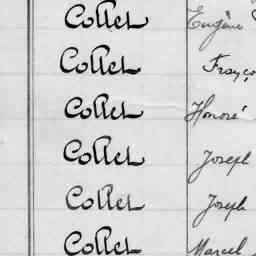 Collet Eugène
Collet Franço
Collet Honoré
Collet Joseph
Collet Joseph
Collet Marcel